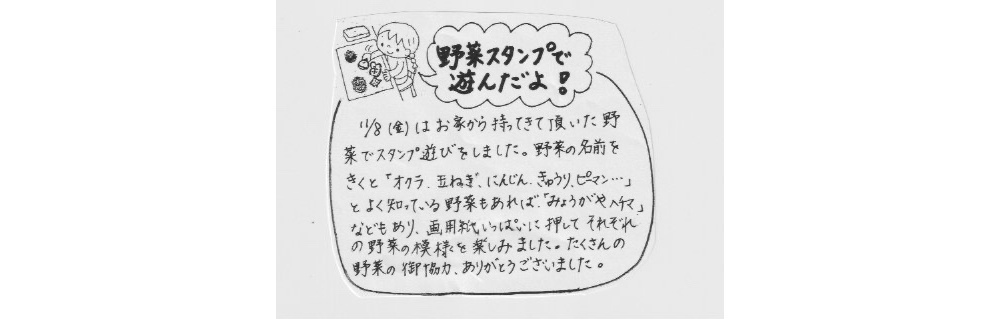 野菜スタンプで
遊んだよ!
11/8(金)はお家から持ってきて頂いた野
菜でスタンプ遊びをしました。野菜の名前を
きくと「オクラ、玉ねぎ、にんじん、きゅうり、ピーマン…」
とよく知っている野菜もあれば、「みょうがやヘチマ」
などもあり、画用紙いっぱいに押してそれぞれ
の野菜の模様を楽しみました。たくさんの
野菜の御協力、ありがとうございました。